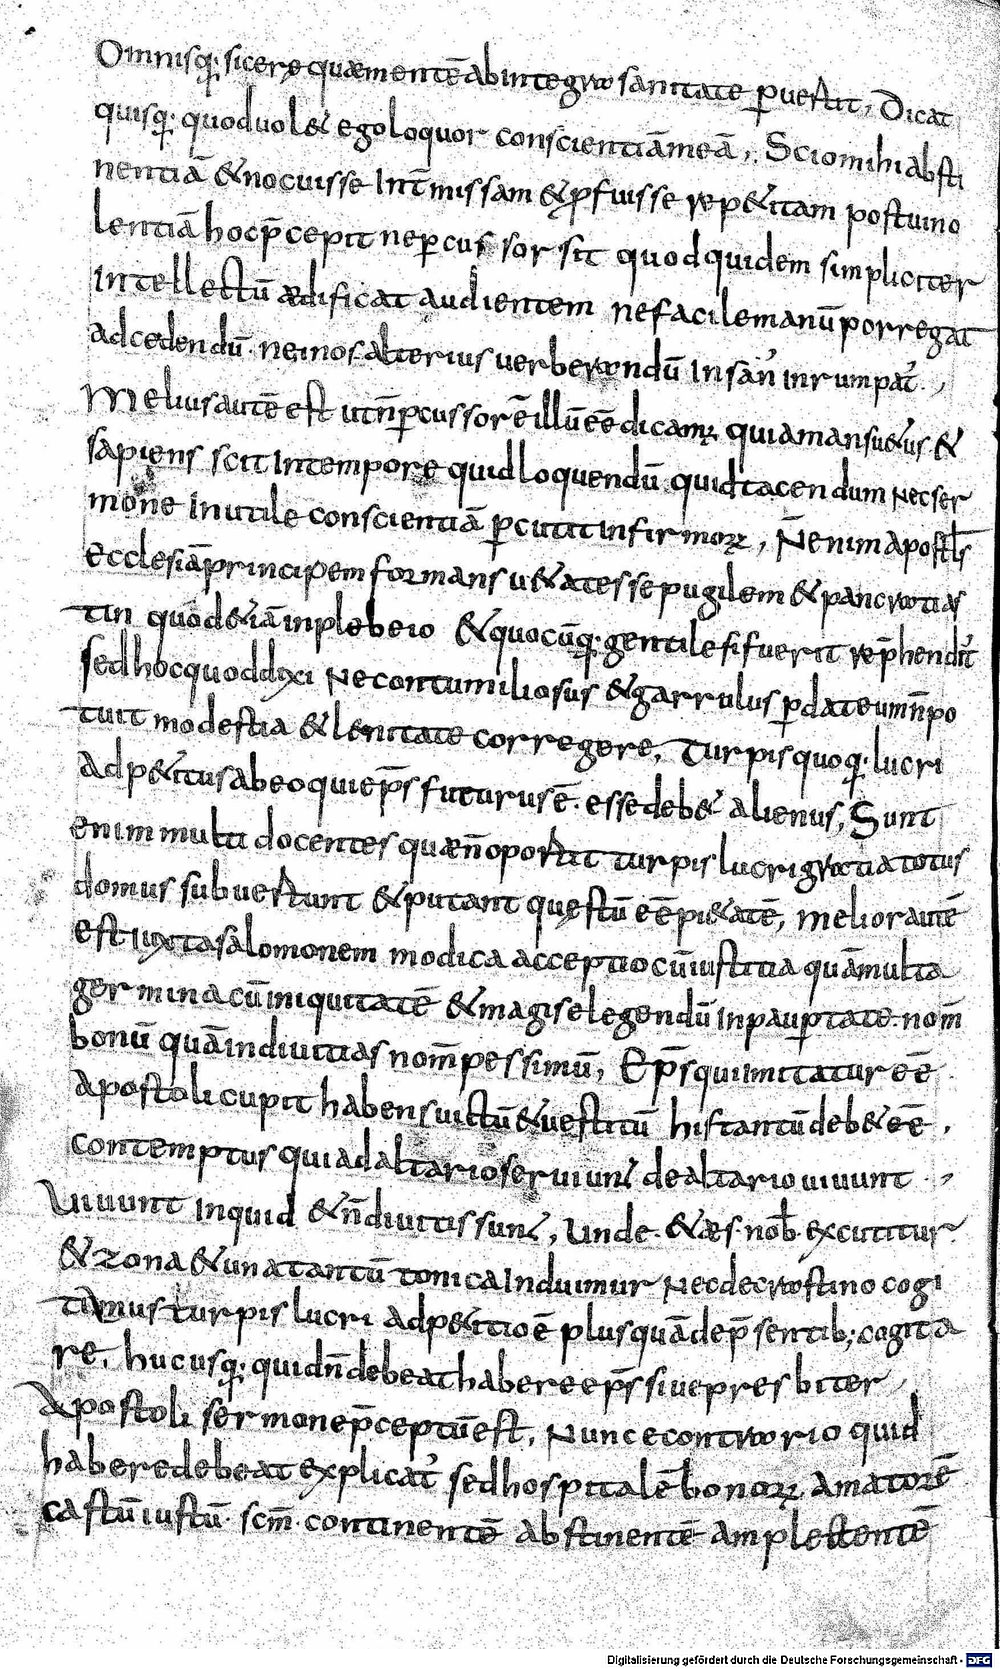 Omnisq; sicere quæ mentē ab integra sanitate ꝑuertit, Dicat
quisq; quod uol& ego loquor conscientiā meā, Scio mihi absti
nentiā & nocuisse Int̄missam & ꝓfuisse rep&itam post uino
lentiā hoc p̄cepit ne ꝑcussor sit quod quidem simpliciter
intellectū ædificat audientem ne facile manū porregat
ad cedendū ne in os alterius uerberandū Insan' inrumpat'
Melius autē est ut n̄ ꝑcussorē illū eē dicamꝝ qui amansu&us &
sapiens scit In tempore quid loquendū quid tacendum Nec ser
mone Inutile conscientiā ꝑcutit infirmoꝝ, N̄ enim apostl̄s
ecclesiā principem formans u&at esse pugilem & pancratias
tin quod &iā in plebeio & quocūq; gentile si fuerit rep̄hendit'
sed hoc quod dixi Ne contumiliosus & garrulus ꝑdat eum n̄ po
tuit modestia & lenitate corregere, Turpis quoq; lucri
Adp&itus ab eo qui ep̄s futurus ē. esse deb& alienus, Sunt
enim multi docentes quæ n̄ oportit turpis lucri gratia totus
domus subuertunt & putant questū eē pi&atē, melior autē
est Iuxta salomonem modica acceptio cū iustitia quā multa
germina cū iniquitatē & magis elegendū In pauꝑtate. nom̄
bonū quā in diuitias nom̄ pessimū, Ep̄s qui imitatur eē
apostoli cupit habens uictū & uestitū his tantū deb& eē,
contemptus qui ad altario seruiunt de altario uiuunt,
Uiuunt inquid & n̄ diuitis sunt, Unde. & æs. nob̄. excutitur
& zona & una tantū tonica Induimur Nec de crastino cogi
tamus turpis lucri adp&itio ē plus quā de p̄sentib; cogita
re, hucusq; quid n̄ debeat habere ep̄s siue presbiter
Apostoli sermone p̄ceptū est, Nunc econtrario quid
habere debeat explicat' sed hospitalē bonoꝝ amatorē
castū iustū. scm̄. continentē abstinentē amplectentē
Digitalisierung gefördert durch die Deutsche Forschungsgemeinschaft - DFG